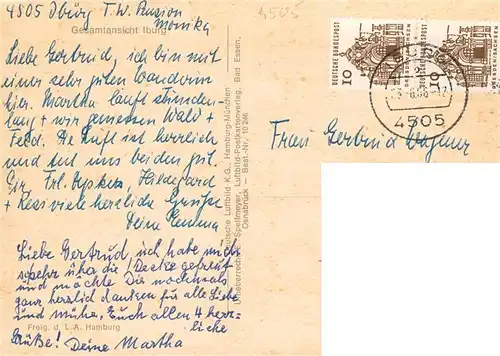 4505 Iburg T.W. Pension
Monika
4505
Gesamtansicht Iburg
Liebe Gertrud, ich bin mit
einer sehr guten Wanderin
hier. Martha läuft stunden-
lang + wir geniessen Wald +
Feld. Die Luft ist herrlich
und tut uns beiden gut.
Hildegard
+ Kess viele herzliche Grüße
Deine Emma
Liebe Gertrud, ich habe mich
so sehr über die Decke gefreut
und möchte Dir nochmals
ganz herzlich danken für alle Liebe
und Mühe. Euch allen 4 herz-
liche
Grüße! Deine Martha
Freig. d. L.A. Hamburg
Deutsche Luftbild K.G., Hamburg-München
Urheberrecht: Spellmeyer, Luftbild-Postkartenverlag, Bad Essen,
Osnabrück — Best.-Nr. 10 246
DEUTSCHE BUNDESPOST
10
10
4505
Frau Gertrud Wagener